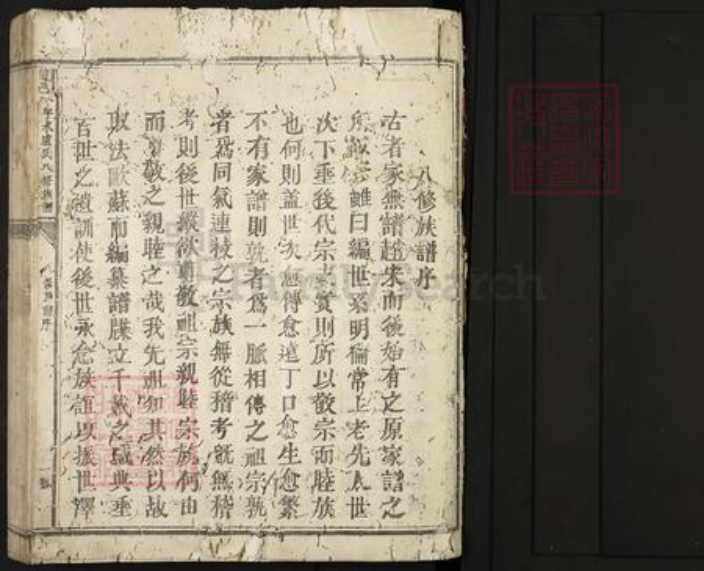 八修族譜序
古者家無譜趙宋而後始有之原家譜之
所 雖曰編世系明倫常上老先人世
次下垂後代宗支實則所以敬宗而睦族
也何則盖世次愈傳愈遠丁口愈生愈繁
不有家譜則孰者爲一脈相傳之祖宗孰
者爲同氣連枝之宗族無從稽考旣無稽
考則後世縱欲尊敬祖宗親睦宗族何由
而尊敬之親睦之哉我先祖知其然以故
取法歐蘇而編纂譜牒立千載之盛典垂
百世之遺訓使後世永念族誼以振世澤
盧氏八修族譜
譜序
FamilySearch